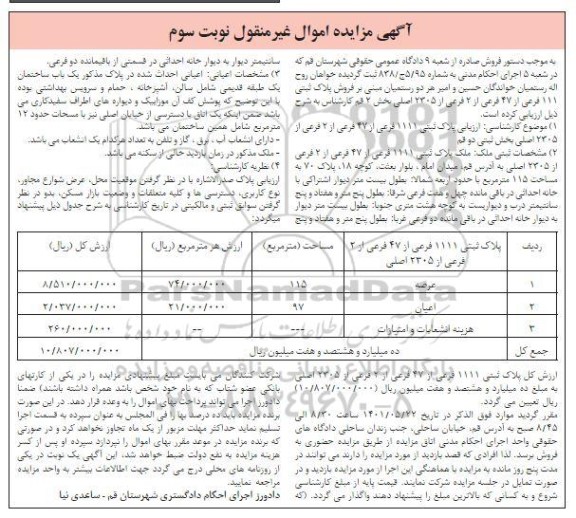 آگهی مزایده اموال غیرمنقول نوبت سوم
به موجب دستور فروش صادره از شعبه ۹ دادگاه عمومی حقوقی شهرستان قم که
در شعبه ۵ اجرای احکام مدنی به شماره ۵/۹۵ج/۸۳۸ ثبت گردیده خواهان روح
اله رستمیان خواندگان حسین و امیر هر دو رستمیان مبنی بر فروش پلاک ثبتی
۱۱۱ فرعی از ۴۷ فرعی از ۲ فرعی از ۲۳۰۵ اصلی بخش ۲ قم کارشناس به شرح
ذیل ارزیابی کرده است.
۱) موضوع کارشناسی: ارزیابی پلاک ثبتی ۱۱۱۱ فرعی از ۴۷ فرعی از ۲ فرعی از
۲۳۰۵ اصلی بخش ثبتی دو قم
۲) مشخصات ثبتی ملک: ملک پلاک ثبتی ۱۱۱۱ فرعی از ۴۷ فرعی از ۲ فرعی
از ۲۳۰۵ اصلی به آدرس قم، میدان امام، بلوار بعثت، کوچه ۱۸، پلاک ۷۰ به
مساحت ۱۱۵ مترمربع با حدود اربعه شمالا: بطول بیست متر دیوار اشتراکی با
خانه احداثی در باقی مانده چهل و هفت فرعی شرقا: بطول پنج متر و هفتاد و پنج
سانتیمتر درب و دیواریست به کوچه هشت متری جنوبا: بطول بیست متر دیوار
به دیوار خانه احداثی در باقی مانده دو فرعی غربا: بطول پنج متر و هفتاد و پنج
سانتیمتر دیوار به دیوار خانه احداثی در قسمتی از باقیمانده دو فرعی.
۳) مشخصات اعیانی: اعیانی احداث شده در پلاک مذکور یک باب ساختمان
یک طبقه قدیمی شامل سالن، آشپزخانه، حمام و سرویس بهداشتی بوده
با این توضیح که پوشش کف آن موزاییک و دیواره های اطراف سفیدکاری می
باشد ضمن اینکه یک اتاق با دسترسی از خیابان اصلی نیز با مساحت حدود ۱۲
مترمربع شامل همین ساختمان می باشد.
- دارای انشعاب آب، برق، گاز و تلفن به تعداد هرکدام یک انشعاب می باشد.
- ملک مذکور در زمان بازدید خالی از سکنه می باشد.
۴) نظریه کارشناسی:
ارزیابی پلاک صدرالاشاره با در نظر گرفتن موقعیت محل، عرض شوارع مجاور،
نوع کاربری، دسترسی ها و کلیه متعلقات و وضعیت بازار مسکن، بدو در نظر
گرفتن سوابق ثبتی و مالکیتی در تاریخ کارشناسی به شرح جدول ذیل پیشنهاد
میگردد:
ردیف پلاک ثبتی ۱۱۱۱ فرعی از ۴۷ فرعی از ۲ فرعی از ۲۳۰۵ اصلی مساحت (مترمربع) ارزش هر مترمربع (ریال) ارزش کل (ریال)
۱ عرصه ۱۱۵ ۷۴/۰۰۰/۰۰۰ ۸/۵۱۰/۰۰۰/۰۰۰
۲ اعیان ۹۷ ۲۱/۰۰۰/۰۰۰ ۲/۰۳۷/۰۰۰/۰۰۰
۳ هزینه انشعابات و امتیازات --- -- ۲۶۰/۰۰۰/۰۰۰
جمع کل ده میلیارد و هشتصد و هفت میلیون ریال ۱۰/۸۰۷/۰۰۰/۰۰۰
ارزش کل پلاک ثبتی ۱۱۱۱ فرعی از ۴۷ فرعی از ۲ فرعی از ۲۳۰۵ اصلی
به مبلغ ده میلیارد و هشتصد و هفت میلیون ریال (۱۰/۸۰۷/۰۰۰/۰۰۰)
ریال تعیین می گردد.
مقرر گردید موارد فوق الذکر در تاریخ ۱۴۰۱/۰۵/۲۲ ساعت ۸/۳۰ الی
۸/۴۵ صبح به آدرس قم، خیابان ساحلی، جنب زندان ساحلی دادگاه های
حقوقی واحد اجرای احکام مدنی اتاق مزایده از طریق مزایده حضوری به
فروش برسد. لذا افرادی که قصد بازدید از مورد مزایده را دارند می توانند در
مدت پنج روز مانده به مزایده با هماهنگی این اجرا از مورد مزایده بازدید و در
صورت تمایل در جلسه مزایده شرکت نمایند. قیمت پایه از مبلغ کارشناسی
شروع و به کسانی که بالاترین مبلغ را پیشنهاد دهند واگذار می گردد. (که
شرکت کنندگان می بایست مبلغ پیشنهادی مزایده را در یکی از کارتهای
بانکی عضو شتاب که به نام خود شخص باشد همراه داشته باشند) ضمنا
دادورز اجرا می تواند پرداخت بهای اموال را به وعده قرار دهد. در این صورت
برنده مزایده باید ده درصد بها را فی المجلس به عنوان سپرده به قسمت اجرا
تسلیم نماید حداکثر مهلت مزبور از یک ماه تجاوز نخواهد کرد و در صورتی
که برنده مزایده در موعد مقرر بهای اموال را نپردازد سپرده او پس از کسر
هزینه مزایده به نفع دولت ضبط خواهد شد، این آگهی یک نوبت در یکی
از روزنامه های محلی درج می گردد جهت اطلاعات بیشتر به واحد مزایده
مراجعه نمایید.
دادورز اجرای احکام دادگستری شهرستان قم - ساعدی نیا
ParsNamadData